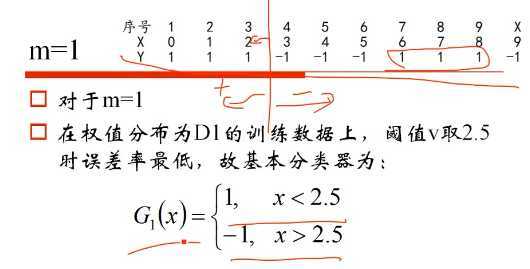 序号 1 2 3 4 5 6 7 8 9 X
X 0 1 2 3 4 5 6 7 8 9
Y 1 1 1 -1 -1 -1 1 1 1 -1
m=1
+ −
对于m=1
在权值分布为D1的训练数据上，阈值v取2.5
时误差率最低，故基本分类器为：
G₁(x)={1, x < 2.5
−1, x > 2.5